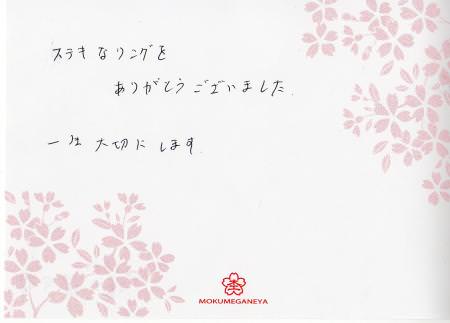 ステキなリングを
ありがとうございました.
一生大切にします.
MOKUMEGANEYA